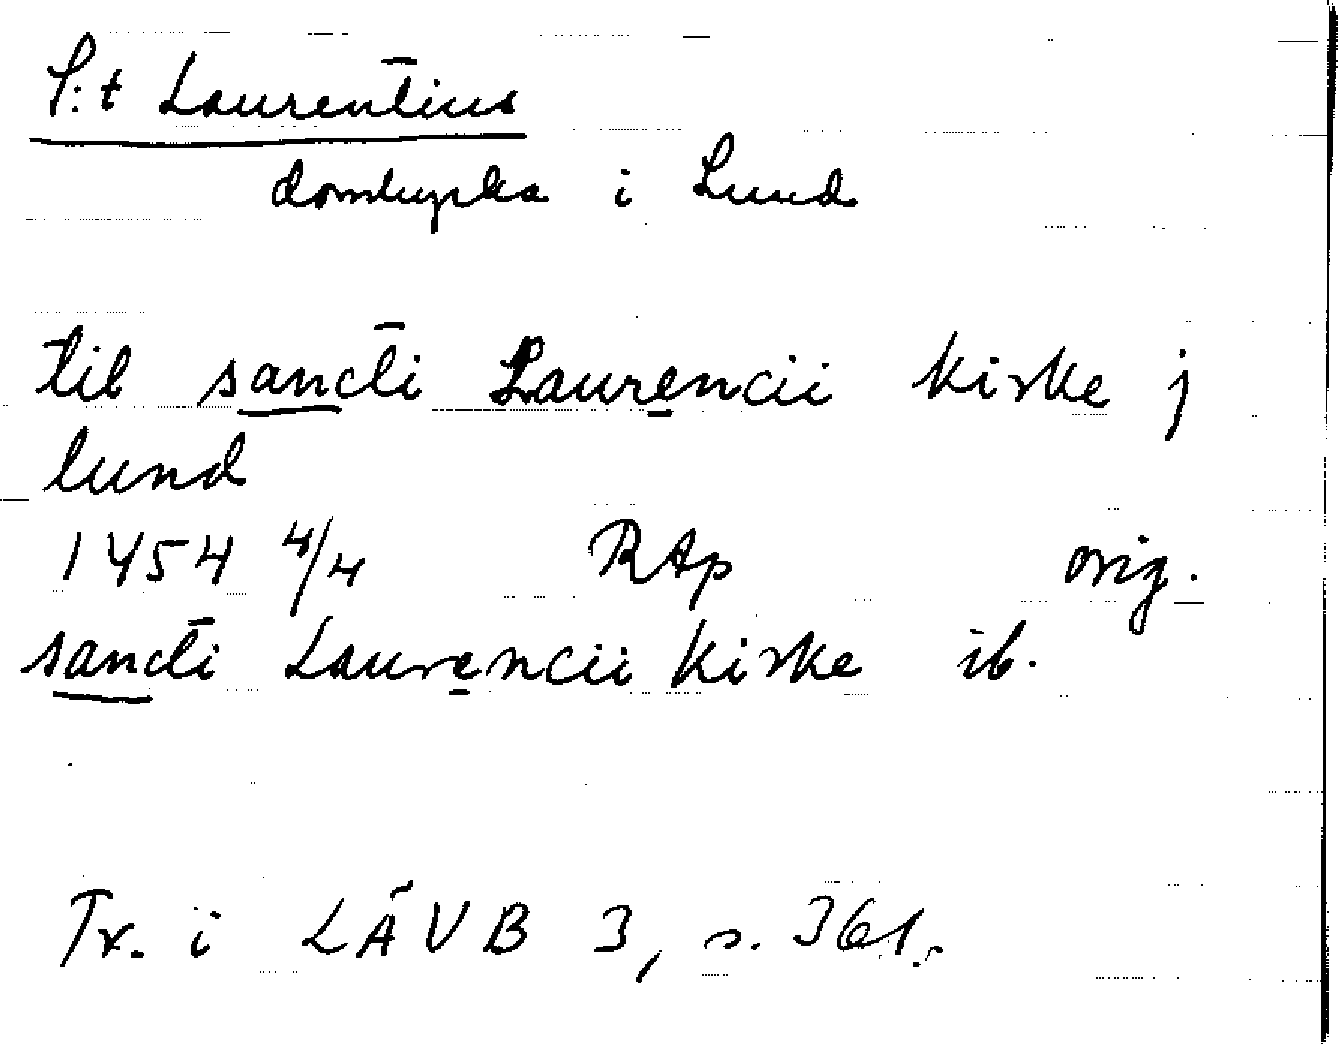 S:t Laurentius
domkyrka i Lund
til sancti Laurencii kirke j
lund
1454 4/4 RAp orig.
sancti Laurencii kirke ib.
Tr. i LÄUB 3, s. 361.